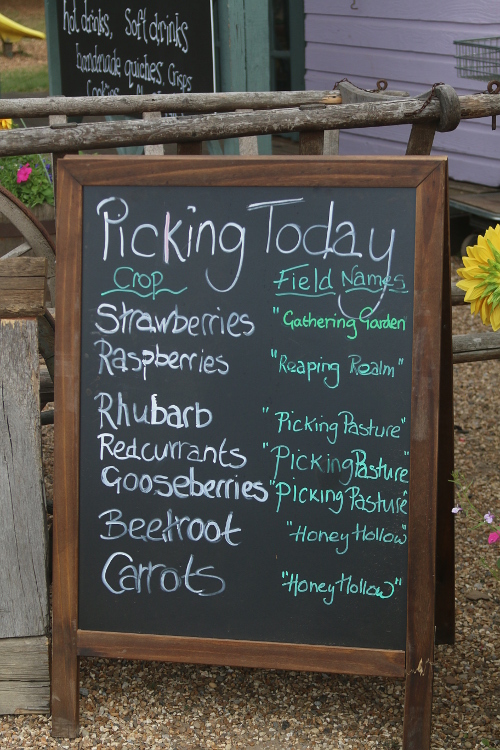 hot drinks, Soft drinks
handmade quiches, Crisps
Cookies &
Picking Today
Crop Field Names
Strawberries "Gathering Garden
Raspberries "Reaping Realm"
Rhubarb "Picking Pasture"
Redcurrants "Picking Pasture"
Gooseberries "Picking Pasture"
Beetroot "Honey Hollow"
Carrots "Honey Hollow"